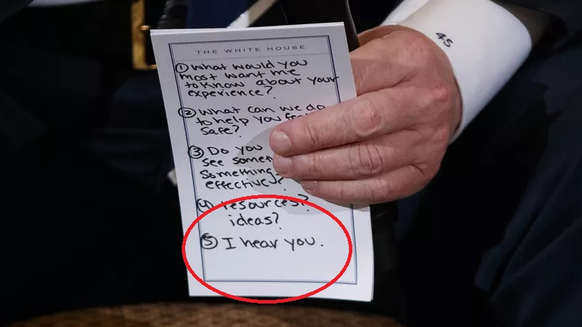 THE WHITE HOUSE
① What would you
most want me
to know about your
experience?
② What can we do
to help you feel
safe?
③ Do you
see some
Something
effective?
④ resources?
ideas?
⑤ I hear you.
45